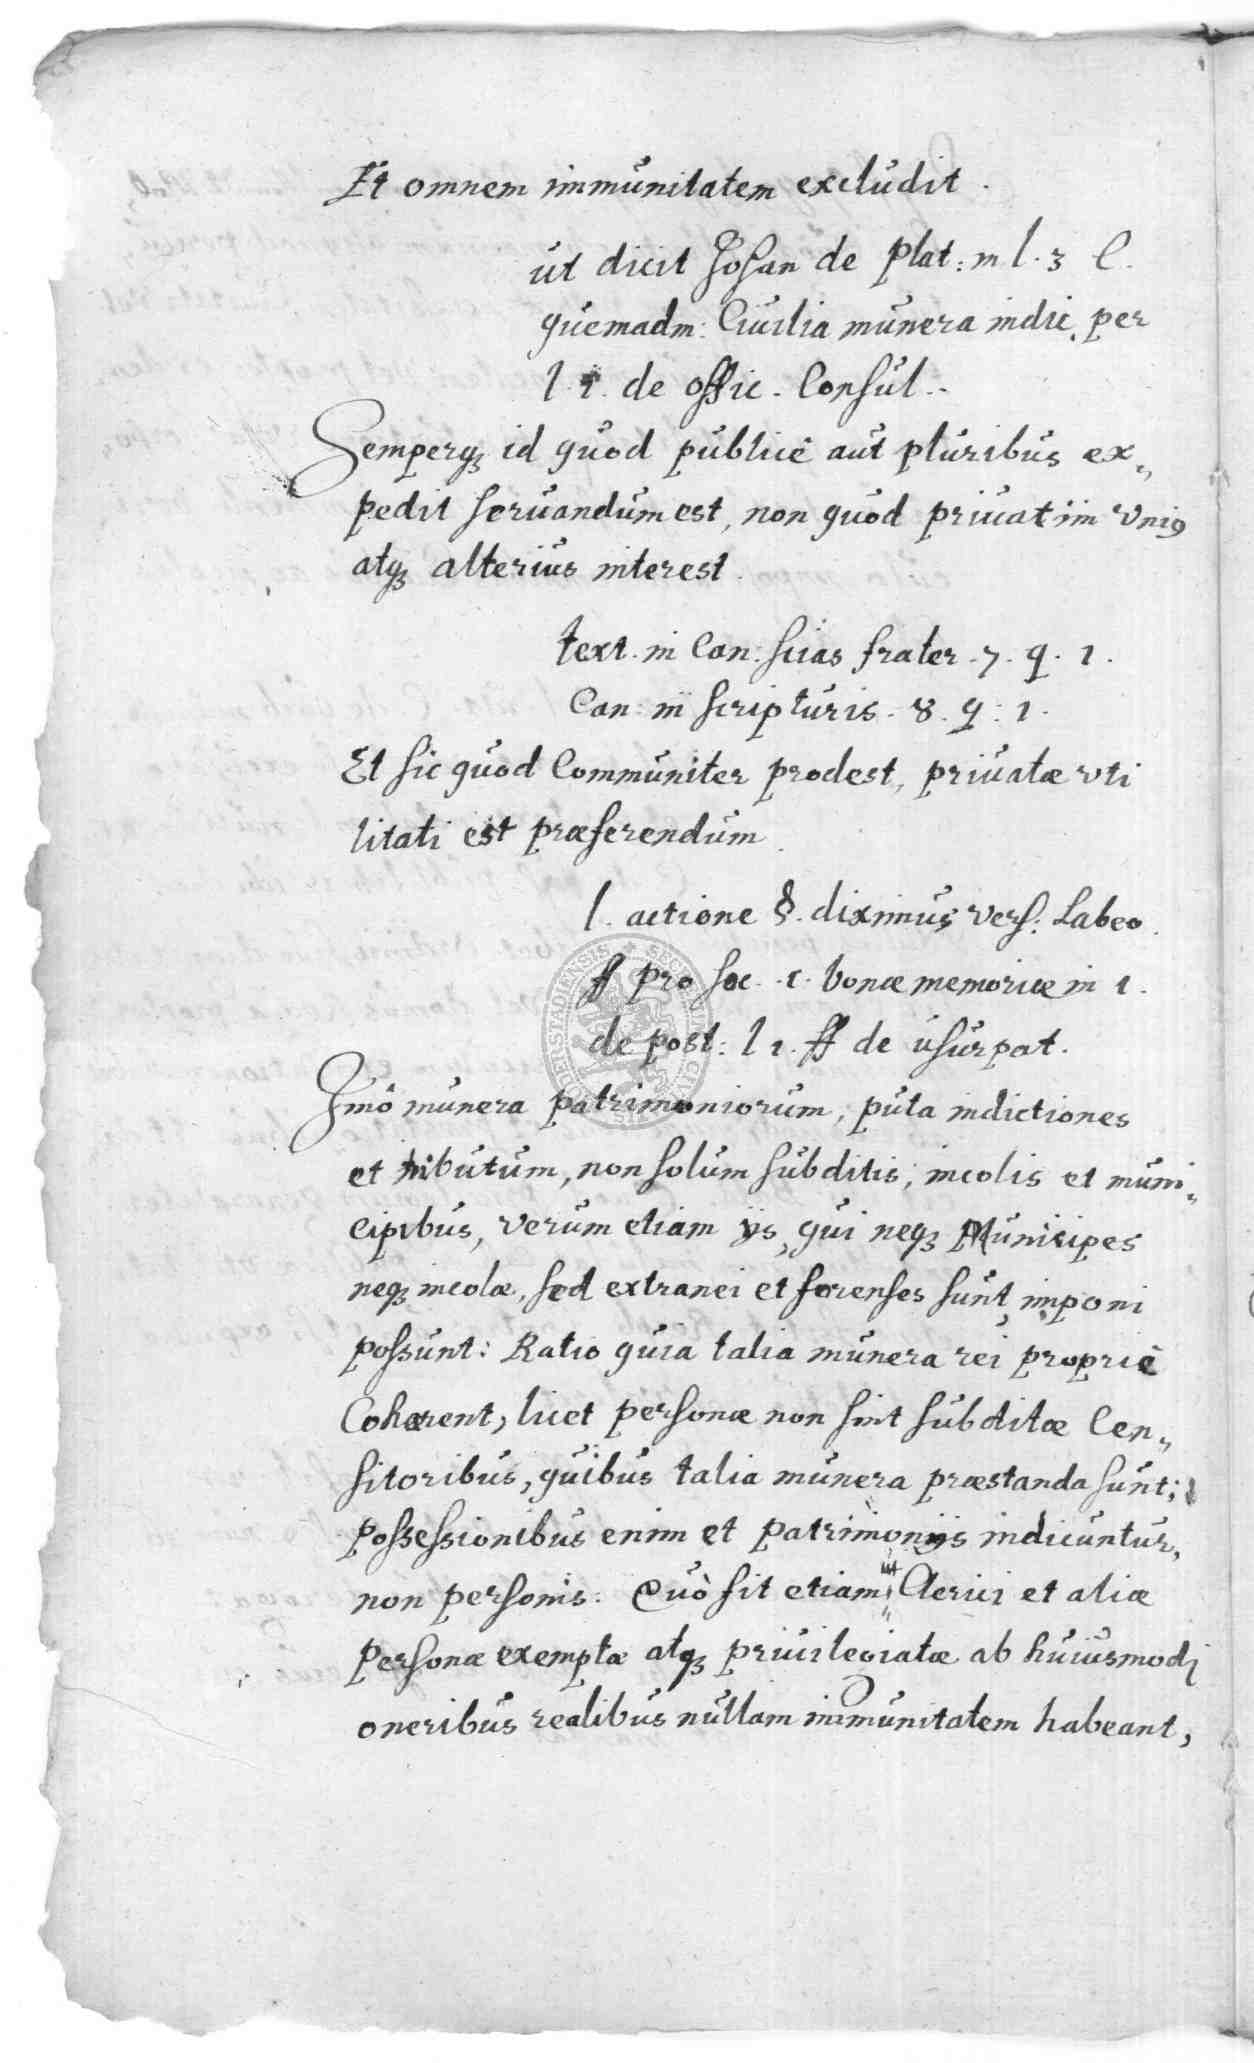 Et omnem immunitatem excludit.
ut dicit Johan de Plat: in l. 3 C.
quemadm: Civilia munera indic. per
l. 1. de offic. Consul.
Semperq́ꝫ id quod publicè aut pluribus ex„
pedit seruandum est, non quod priuatim vniꝯ
atqꝫ alterius interest.
text. in Can: scias frater. 7. q. 1.
Can: in scripturis. 8. q: 1.
Et sic quod Communiter prodest, priuatæ vti
litati est præferendum.
l. actione §. diximus vers: Labeo.
ff pro soc. c. bonæ memoriæ in 1.
de post: l 1. ff de usurpat.
Imò munera patrimoniorum, puta indictiones
et tributum, non solum subditis, incolis et muni„
cipibus, verum etiam ijs, qui neqꝫ Municipes
neqꝫ incolæ, sed extranei et forenses sunt, imponi
possunt: Ratio quia talia munera rei propriè
Cohærent, licet personæ non sint subditæ Cen„
sitoribus, quibus talia munera præstanda sunt;
possessionibus enim et patrimonijs indicuntur,
non personis: Quò fit etiam Clerici et aliæ
personæ exemptæ atqꝫ priuilegiatæ ab huiusmodj
oneribus realibus nullam immunitatem habeant,